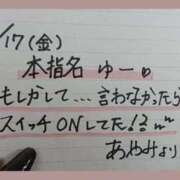 /17(金)
本指名 ゆー♥
もしかして...言わなかったら
スイッチONしてた!?
あやみより